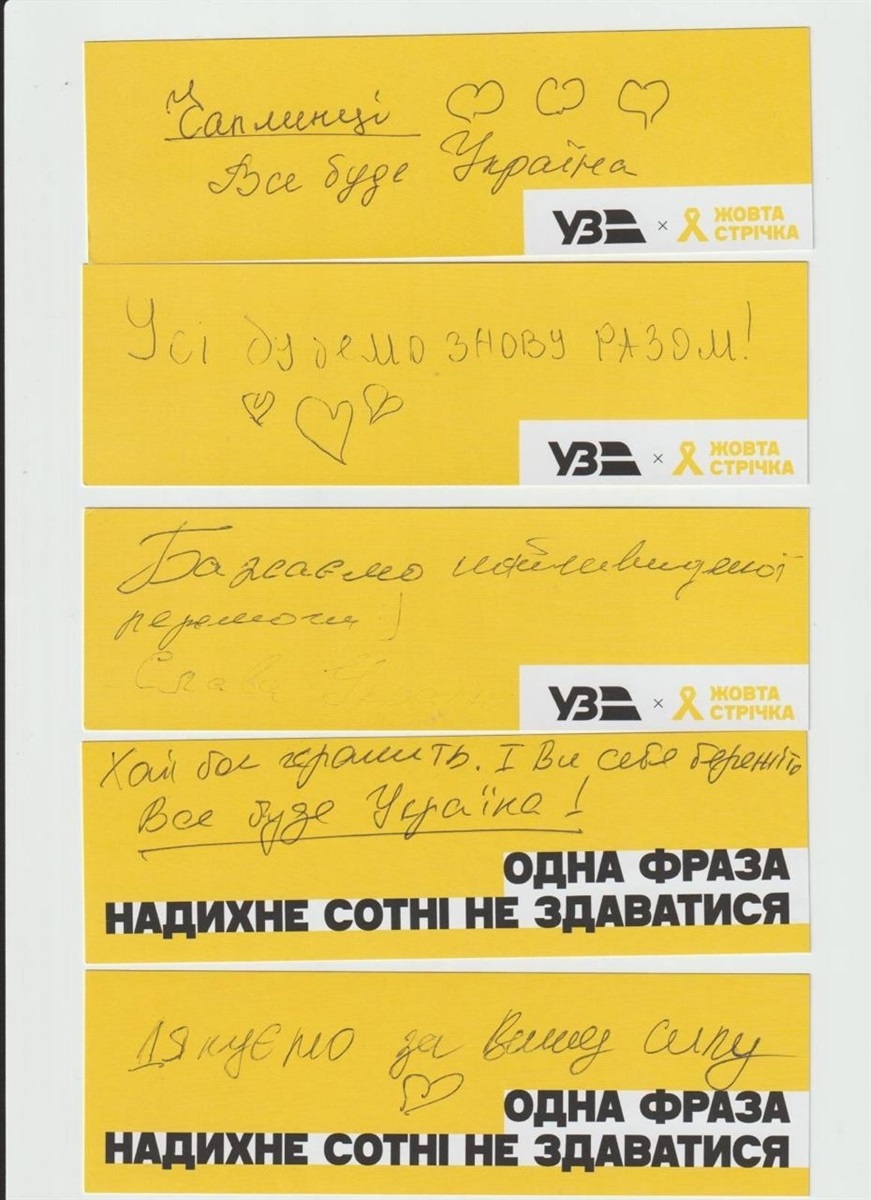 Чаплинці
Все буде Україна
УЗ × ЖОВТА
СТРІЧКА
Усі будемо знову разом!
УЗ × ЖОВТА
СТРІЧКА
Бажаємо найшвидшої
перемоги!
Слава Україні
УЗ × ЖОВТА
СТРІЧКА
Хай бог хранить. І Ви себе бережіть
Все буде Україна!
ОДНА ФРАЗА
НАДИХНЕ СОТНІ НЕ ЗДАВАТИСЯ
Дякуємо за Вашу силу
ОДНА ФРАЗА
НАДИХНЕ СОТНІ НЕ ЗДАВАТИСЯ